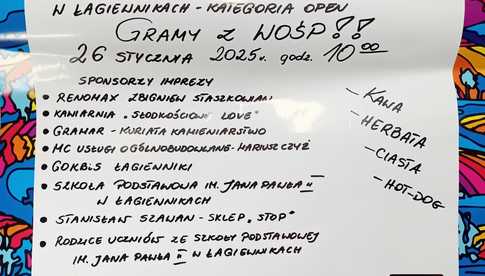 W ŁAGIEWNIKACH - KATEGORIA OPEN
GRAMY Z WOŚP!!
26 STYCZNIA 2025r. godz. 10⁰⁰
SPONSORZY IMPREZY
• RENOMAX ZBIGNIEW STASZKOWIAN
• KAWIARNIA „SŁODKOŚCIOWE LOVE"
• GRAMAR - KURIATA KAMIENIARSTWO
• MC USŁUGI OGÓLNOBUDOWLANE - MARIUSZ CZYŻ
• GOKBIS ŁAGIEWNIKI
• SZKOŁA PODSTAWOWA IM. JANA PAWŁA II
W ŁAGIEWNIKACH
• STANISŁAW SZAWAN - SKLEP „STOP"
• RODZICE UCZNIÓW ZE SZKOŁY PODSTAWOWEJ
IM. JANA PAWŁA II W ŁAGIEWNIKACH
- KAWA
- HERBATA
- CIASTA
- HOT-DOG